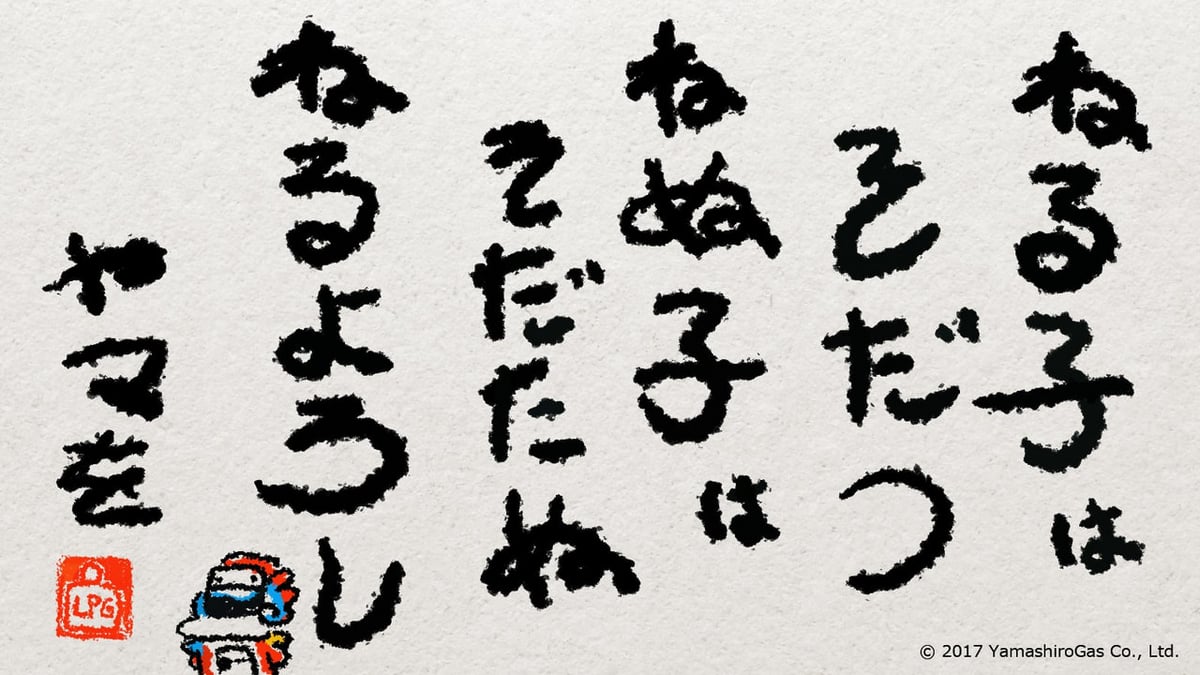 ねる子は
そだつ
ねぬ子は
そだたぬ
ねるようし
やマを
LPG
© 2017 YamashiroGas Co., Ltd.